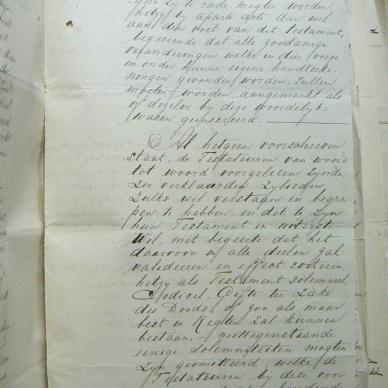 zy te rade mogten worden
hetzy by aparte acte, dan wel
aan den voet van dit Testament,
begeerende dat alle zoodanige
veranderingen welke in dier voege
en onder hunne eigene handteeke-
ningen gevonden worden, zullen
moeten worden aangemerkt als
of dezelve by deze woordelyk
waren geinsereerd.
Al hetgeen voorschreven
staat, de Testateuren van woord
tot woord voorgelezen zynde
zoo verklaarden zy beiden
zulks wel verstaan en begre-
pen te hebben, en dit te zyn
hun Testament en uiterste
Wil, met begeerte dat het
daarvoor in alle deelen zal
valideren en effect sorteren
hetzy als Testament solemneel
Codicil, Gifte ter Zake
des Doods of zoo als maar
best in Regten zal kunnen
bestaan, niettegenstaande
eenige solemnyteiten mogten
zyn geomitteerd welke de
Testateuren by deze voor